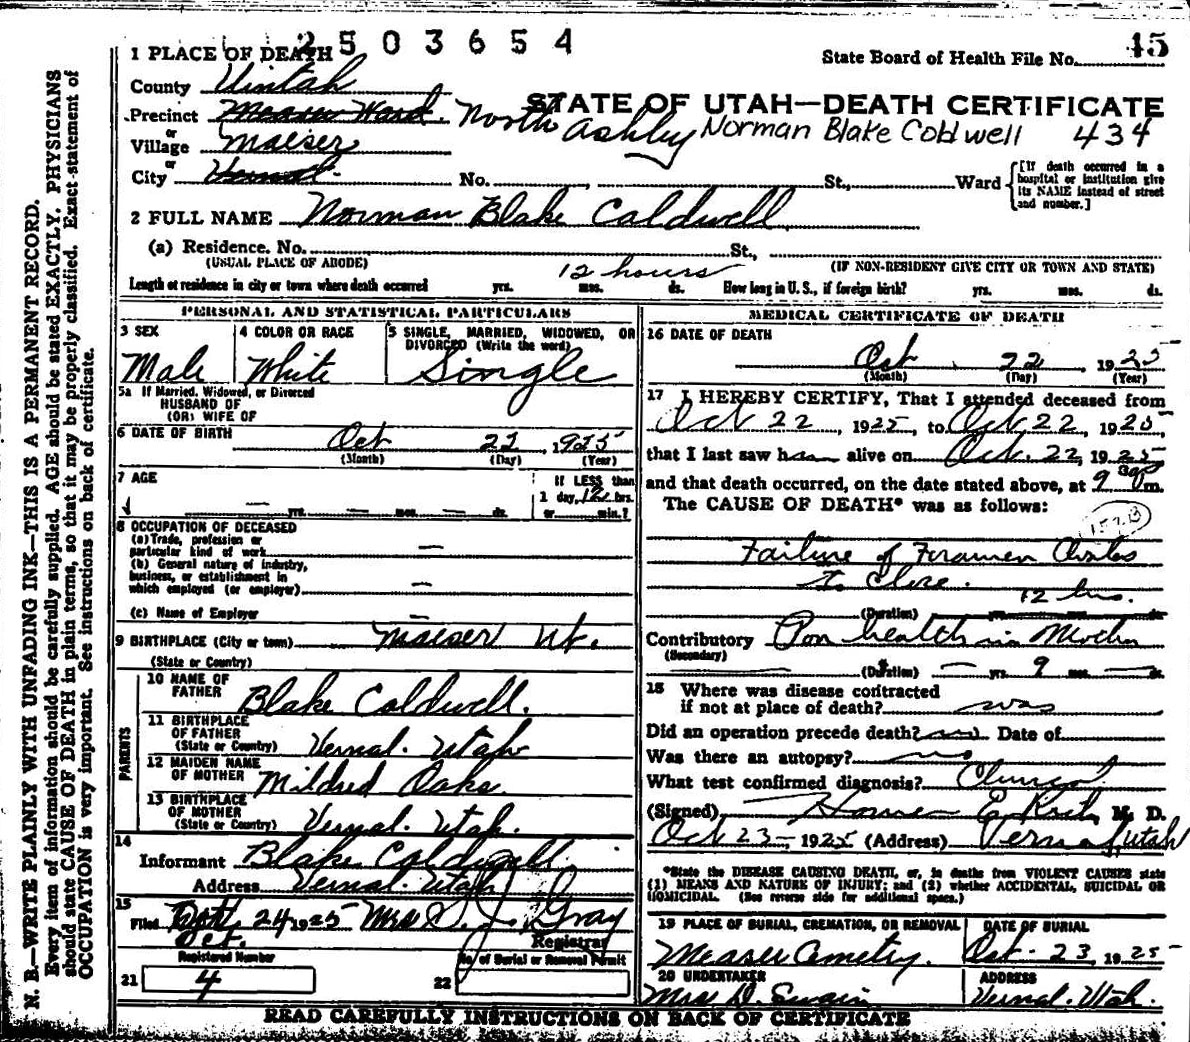 2503654
1 PLACE OF DEATH
State Board of Health File No. 45
County Uintah
STATE OF UTAH—DEATH CERTIFICATE
Precinct Maeser Ward. North Ashley Norman Blake Coldwell 434
or
Village Maeser
or
City Vernal. No. , St., Ward
[If death occurred in a hospital or institution give its NAME instead of street and number.]
2 FULL NAME Norman Blake Caldwell
(a) Residence. No. St.,
(USUAL PLACE OF ABODE) (IF NON-RESIDENT GIVE CITY OR TOWN AND STATE)
12 hours
Length of residence in city or town where death occurred yrs. mos. ds. How long in U. S., if foreign birth? yrs. mos. ds.
PERSONAL AND STATISTICAL PARTICULARS
3 SEX
Male
4 COLOR OR RACE
White
5 SINGLE, MARRIED, WIDOWED, OR
DIVORCED (Write the word)
Single
5a If Married, Widowed, or Divorced
HUSBAND OF
(OR) WIFE OF
6 DATE OF BIRTH Oct 22, 1925
(Month) (Day) (Year)
7 AGE
— yrs. — mos. — ds.
If LESS than
1 day, 12 hrs.
or min.?
8 OCCUPATION OF DECEASED
(a) Trade, profession or
particular kind of work —
(b) General nature of industry,
business, or establishment in
which employed (or employer) —
(c) Name of Employer
9 BIRTHPLACE (City or town) Maeser Ut.
(State or Country)
PARENTS
10 NAME OF
FATHER Blake Caldwell.
11 BIRTHPLACE
OF FATHER
(State or Country) Vernal. Utah
12 MAIDEN NAME
OF MOTHER Mildred Oaks.
13 BIRTHPLACE
OF MOTHER
(State or Country) Vernal. Utah.
14
Informant Blake Caldwell.
Address Vernal. Utah
15
Filed Sept 24 1925 Mrs D. J. Gray
Oct. Registrar
Registered Number
21 4
No. of Burial or Removal Permit
22
MEDICAL CERTIFICATE OF DEATH
16 DATE OF DEATH
Oct 22, 1925
(Month) (Day) (Year)
17 I HEREBY CERTIFY, That I attended deceased from
Oct 22, 1925, to Oct 22, 1925,
that I last saw him alive on Oct. 22, 1925
and that death occurred, on the date stated above, at 9 30 Pm.
The CAUSE OF DEATH* was as follows:
157B
Failure of Foramen Ovales
to Close.
12 hrs.
(Duration)
Contributory Poor health in Mother
(Secondary)
(Duration) — yrs. 9 mos. — ds.
18 Where was disease contracted
if not at place of death? was
Did an operation precede death? no Date of
Was there an autopsy? no
What test confirmed diagnosis? Clinical
(Signed) Homer E. Rich M. D.
Oct 23—, 1925 (Address) Vernal, Utah
*State the DISEASE CAUSING DEATH, or, in deaths from VIOLENT CAUSES state
(1) MEANS AND NATURE OF INJURY; and (2) whether ACCIDENTAL, SUICIDAL OR
HOMICIDAL. (See reverse side for additional space.)
19 PLACE OF BURIAL, CREMATION, OR REMOVAL
Measer Cemetry.
DATE OF BURIAL
Oct. 23, 1925
20 UNDERTAKER
Mrs D. Swain
ADDRESS
Vernal. Utah.
READ CAREFULLY INSTRUCTIONS ON BACK OF CERTIFICATE
N. B.—WRITE PLAINLY WITH UNFADING INK—THIS IS A PERMANENT RECORD.
Every item of information should be carefully supplied. AGE should be stated EXACTLY. PHYSICIANS
should state CAUSE OF DEATH in plain terms, so that it may be properly classified. Exact statement of
OCCUPATION is very important. See instructions on back of certificate.